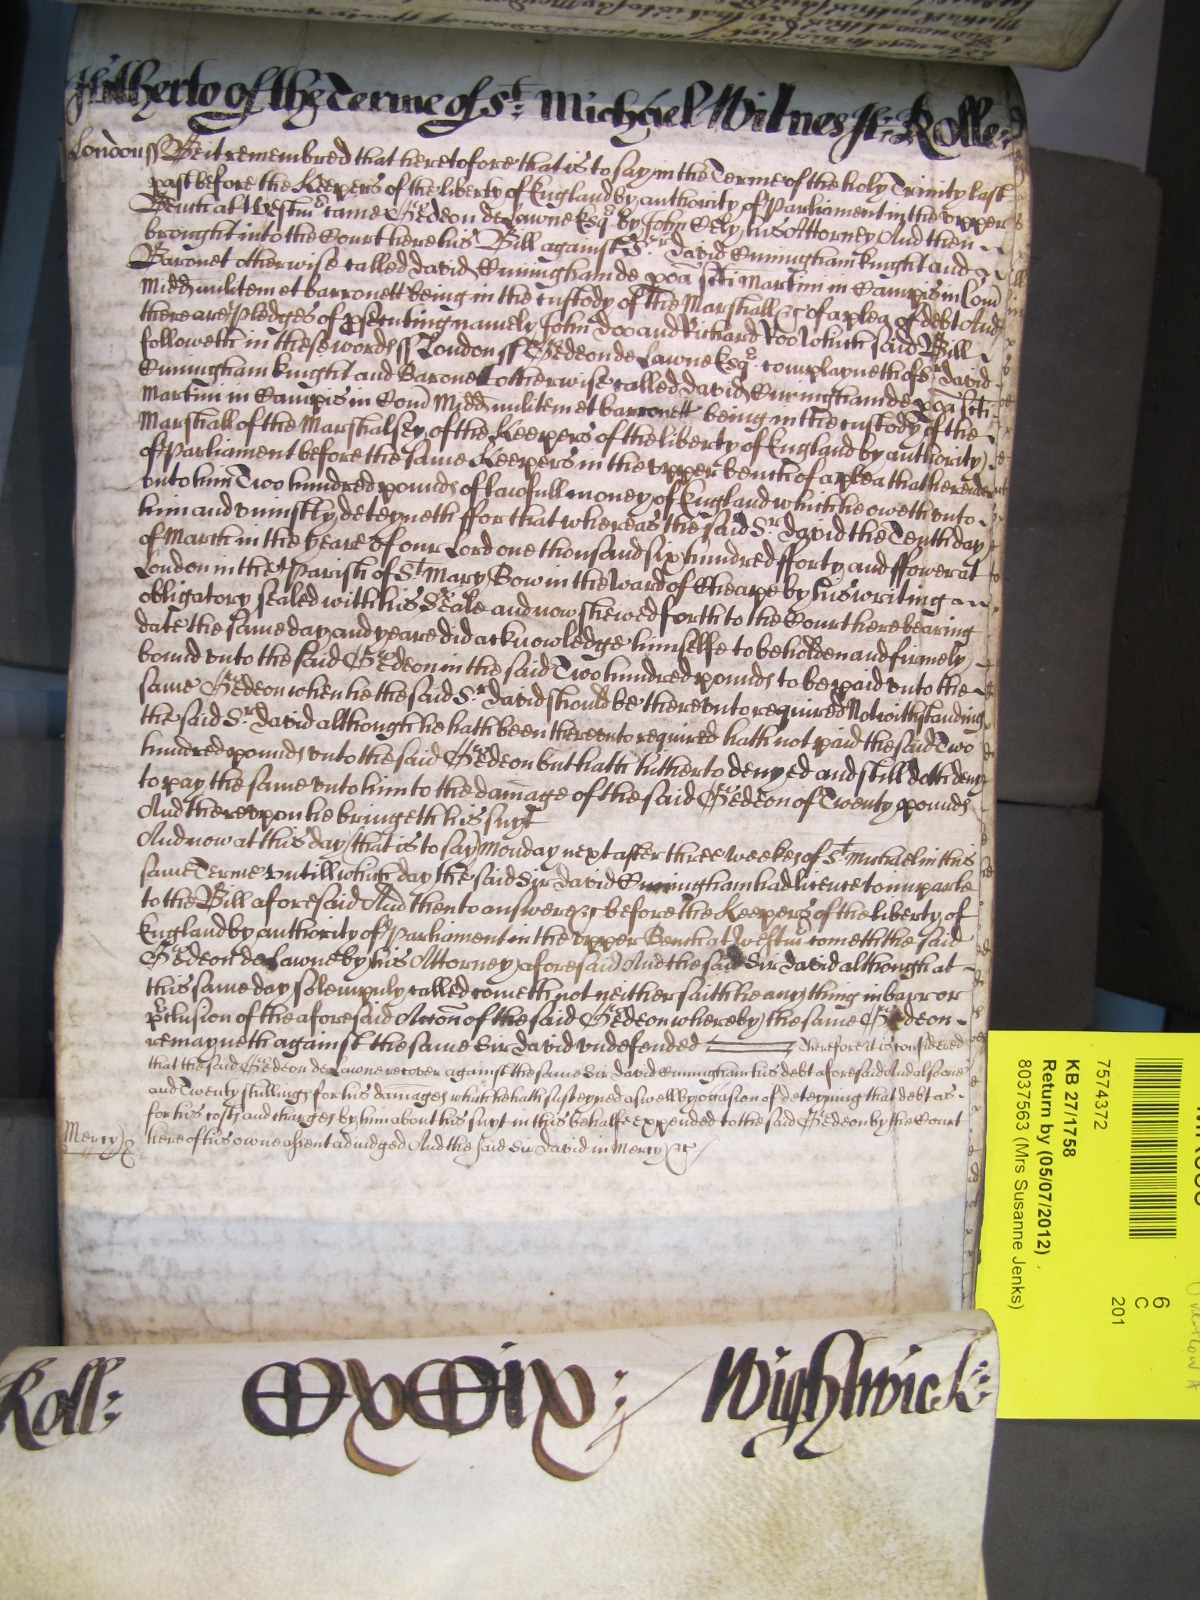 Hitherto of the Terme of St: Michael Witnes H: Rolle:
London ss Be it remembred that heretofore that is to say in the Terme of the holy Trinity last
past before the Keepers of the liberty of England by authority of Parliament in the vpper
Bench at Westmr came Gedeon de Lawne Esqr by John Cely his Attorney And then
brought into the Court here his Bill against Sr david Cuningham knight and
Baronet otherwise called david Cuningham de poa sci Martini in Campis in Com
Midd militem et barronett being in the custody of the Marshall &c of a plea of debt And
there are Pledges of psecuting namely John Doo and Richard Roo Which said Bill
followeth in these words ss London ss Gedeon de Lawne Esqr complayneth of Sr david
Cuningham knight and Baronet otherwise called david Cuningham de poa sci
Martini in Campis in Com Midd militem et barronett being in the custody of the
Marshall of the Marshalsey of the Keepers of the liberty of England by authority
of Parliament before the same Keepers in the vpper bench of a plea that he render
vnto him Two hundred pounds of lawfull money of England which he oweth vnto
him and vniustly deteyneth ffor that whereas the said Sr david the Tenth day
of March in the yeare of our Lord one thousand six hundred fforty and ffower at
London in the Parish of St Mary Bow in the Ward of Cheape by his writing
obligatory sealed with his Seale and now shewed forth to the Court here bearing
date the same day and yeare did acknowledge himselfe to be holden and firmely
bound vnto the said Gedeon in the said Two hundred pounds to be paid vnto the
same Gedeon when he the said Sr david should be therevnto required Notwithstanding
the said Sr david although he hath been therevnto required hath not paid the said Two
hundred pounds vnto the said Gedeon but hath hitherto denyed and still doth deny
to pay the same vnto him to the damage of the said Gedeon of Twenty pounds
And therevpon he bringeth his suyt
And now at this day (that is to say) Monday next after three weekes of St Michael in this
same Terme vntill which day the said Sir david Cuningham had licence to imparle
to the Bill aforesaid And then to answere &c before the Keepers of the liberty of
England by authority of Parliament in the vpper Bench at Westmr cometh the said
Gedeon de Lawne by his Attorney aforesaid And the said Sir david although at
this same day solempnly called cometh not neither saith he any thing in barr or
pclusion of the aforesaid Accon of the said Gedeon whereby the same Gedeon
remayneth against the same Sir david vndefended Therefore it is considered
that the said Gedeon de Lawne recover against the same Sir david Cuningham his debt aforesaid And also one
and Twenty shillings for his damages which he hath susteyned aswell by occasion of deteyning that debt as
for his costs and charges by him about his suyt in this behalfe expended to the said Gedeon by the Court
here of his owne assent adiudged And the said Sir david in Mercy &c
Mercy
Roll: Wightwick:
7574372
KB 27/1758
Return by (05/07/2012)
8037563 (Mrs Susanne Jenks)
6
C
201